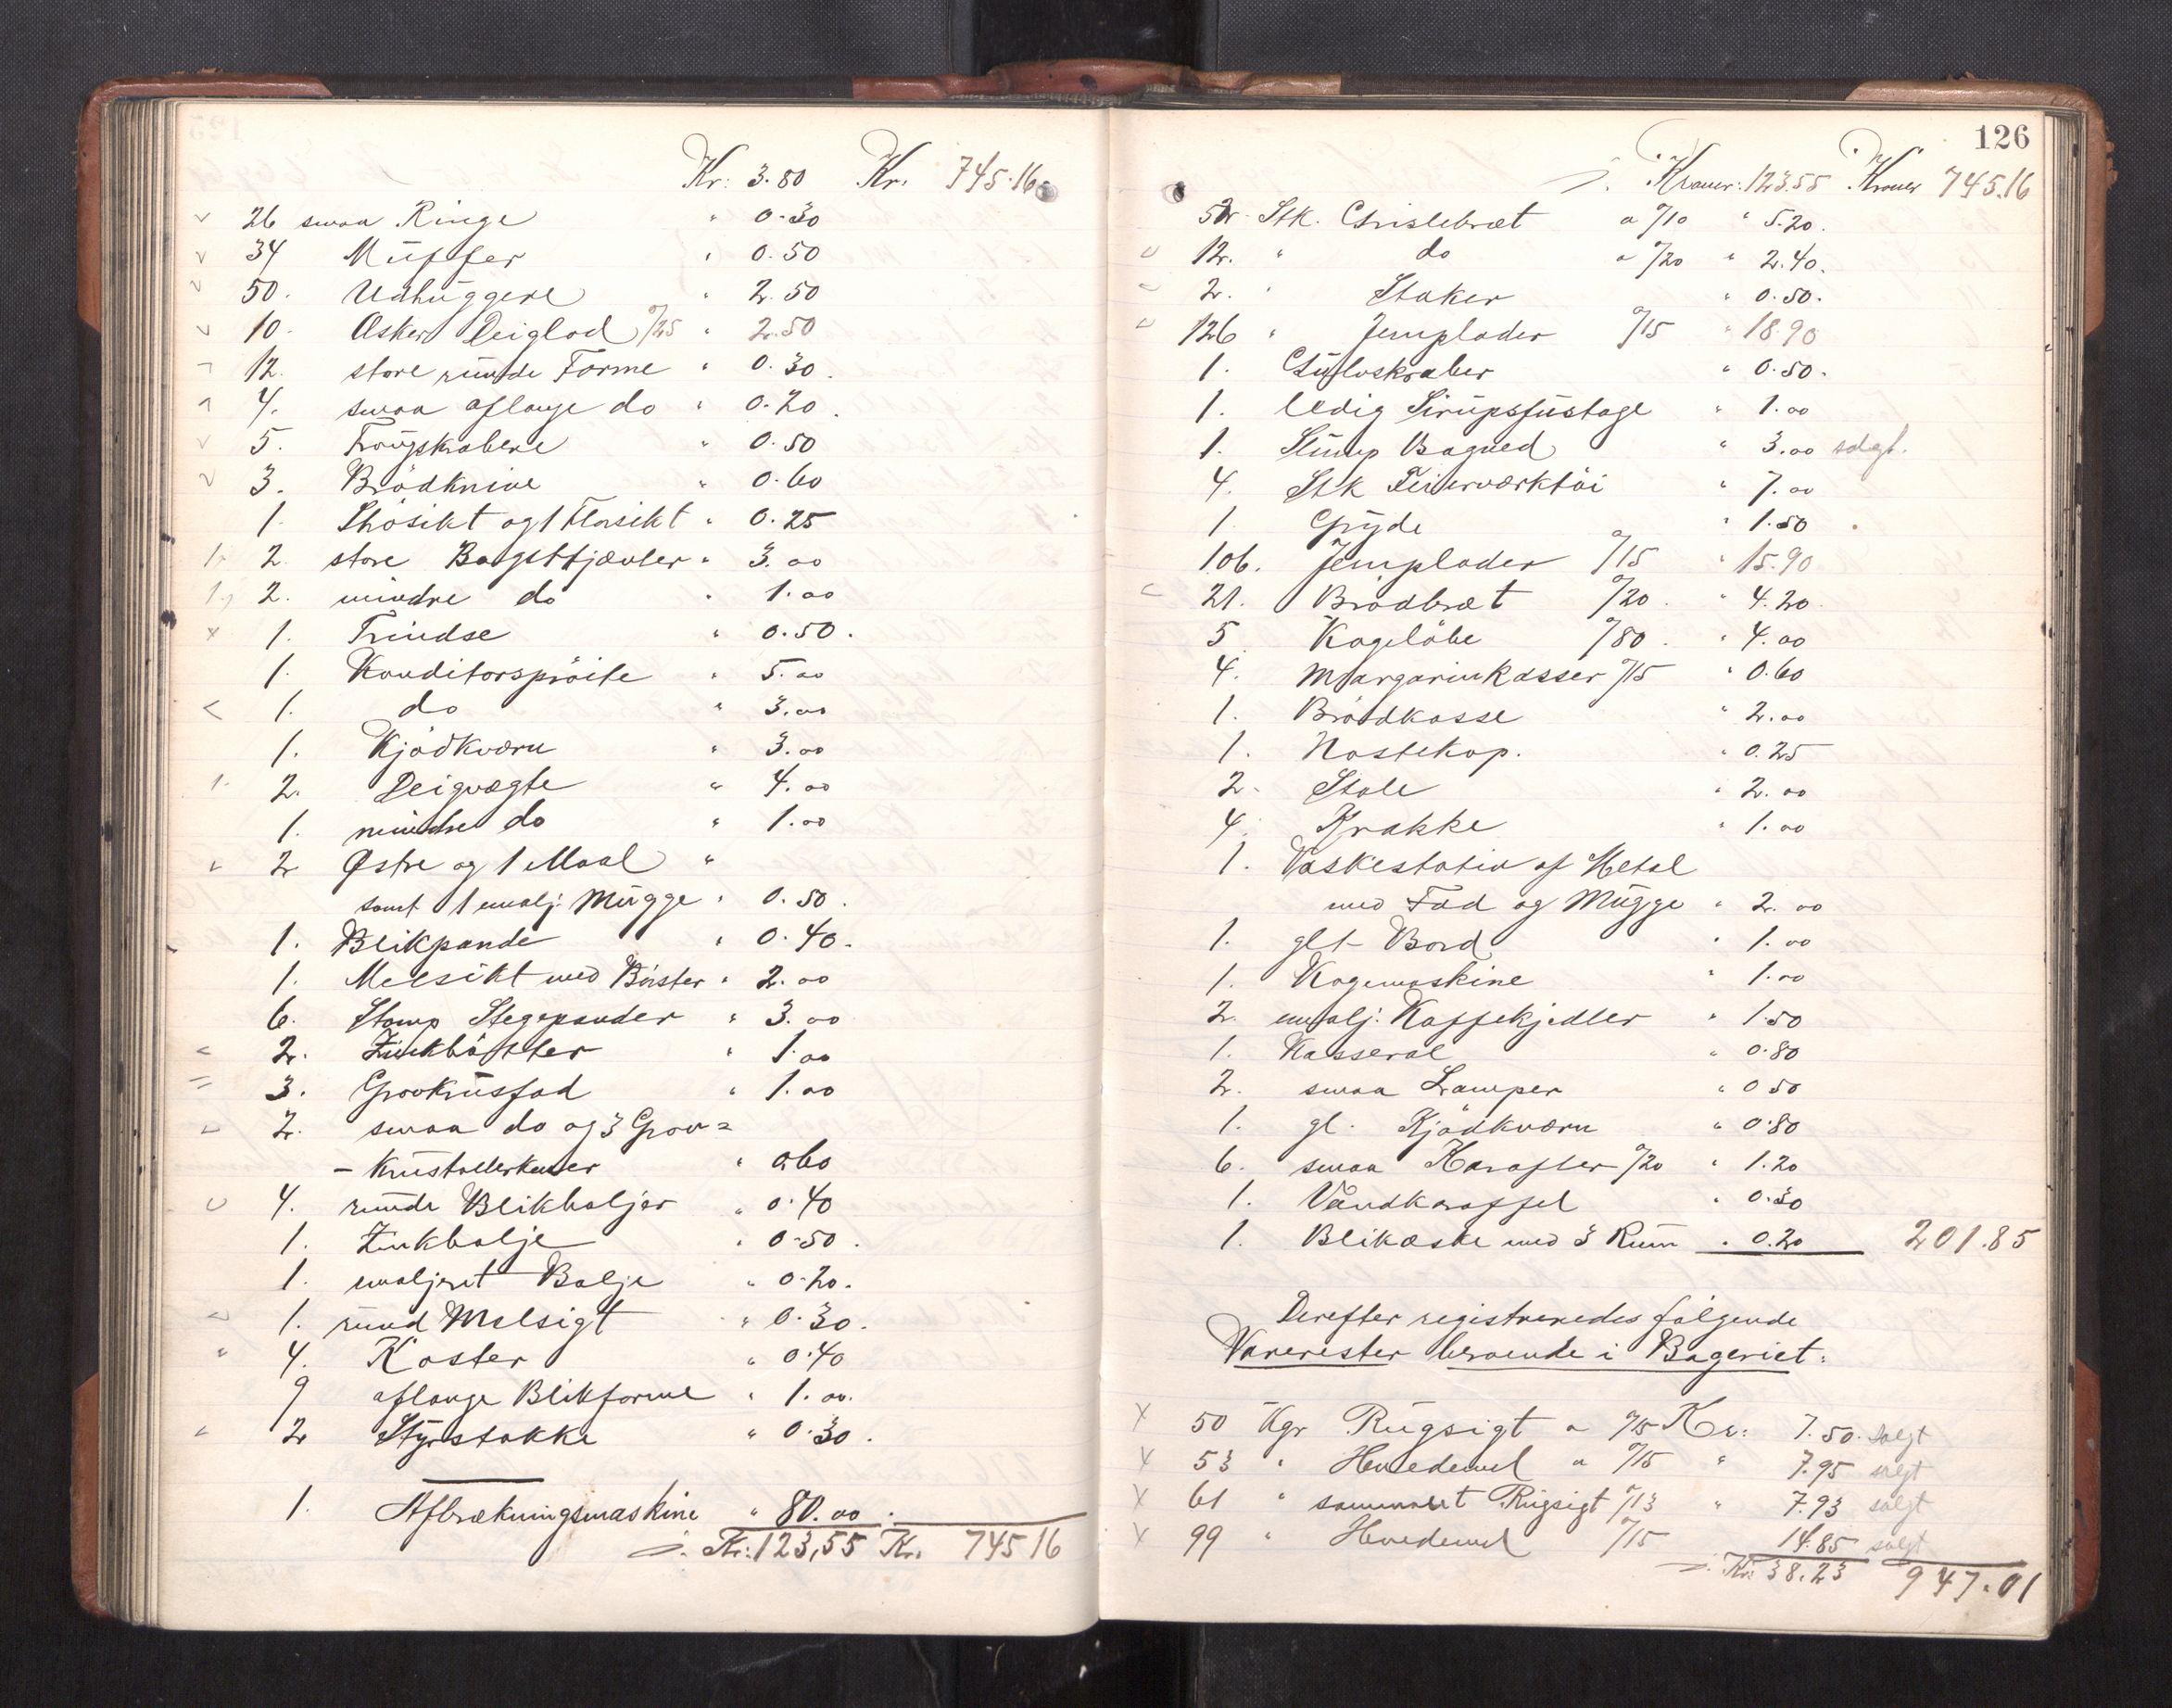 Kr: 3.80 Kr. 745.16
26 smaa Ringe " 0.30
34 Müffer " 0.50
50. Udhüggere " 2.50
10. Asker Deiglod %25 " 2.50
12. store runde Forme " 0.30.
4. smaa aflange do " 0.20.
5. Traugskabere " 0.50
3. Brödknive " 0.60
1. og 1 Florsikt " 0.25
2 store " 3.00
2. mindre do " 1.00
1. Trindse " 0.50.
1. Konditorspröite " 5.00
1. do " 3.00
1. Kjödkværn " 3.00
2. Deigvægte " 4.00
1. mindre do " 1.00
2 Østre og 1 Maal "
samt 1 emalj. Mügge " 0.50.
1. Blikpande " 0.40.
1. Melsikt med Börster " 2.00
6. Stegepander " 3.00
2. Zinkbötter " 1.00
3. Grovkrüsfad " 1.00
2. smaa do og 3 Grov=
- " 0.60
4. runde Blikboljer " 0.40
1. Zinkbolje " 0.50.
1. emaljeret Bolje " 0.20.
1. rund Melsigt " 0.30.
4. Koster " 0.40
9 aflange Blikforme " 1.00.
2 Styrstokke " 0.30.
1. Afbrækningsmaskine " 80.00.
Kr: 123,55 Kr. 745 16
126
Kroner: 123.55 Kroner 745.16
52 Stk. a %10 " 5.20.
12. " do a %20 " 2.40.
2. " Staker " 0.50.
126 " Jernplader %15 " 18.90
1. Gülvskraber " 0.50.
1. ledig Sirupsfüstage " 1.00
1. Slump Bagved " 3.00 solgt.
4. Stk Feierværktöi " 7.00
1. Gryde " 1.50
106. Jernplader %15 " 15.90
21. Brödbræt %20. " 4.20
5 Kageløbe %80. " 4.00
4. Margarinkasser %15 " 0.60
1. Brödkasse " 2.00
1. " 0.25
2. Stole " 2.00
4. Krakke " 1.00
1. Vaskestativ af Metal
med Fad og Mügge " 2.00
1. glt Bord " 1.00
1. Kogemaskine " 1.00
2. emalj. Kaffekjedler " 1.50
1. Kasserol " 0.80
2. smaa Lamper " 0 50
1. gl. Kjödkværn " 0.80
6. smaa Karafler %20 " 1.20
1. Vandkaraffel " 0.30
1. Blikæske med 3 Rum " 0.20 201.85
Derefter registreredes følgende
Varerester beroende i Bageriet:
X 50 Kgr Rügsigt a %15 Kr: 7.50. solgt
X 53 " Hvedemel a %15 " 7.95 solgt
X 61 " sammalt Rügsigt %13 " 7.93 solgt
X 99 " Hvedemel %15 14.85 solgt
Kr: 38.23 947.01